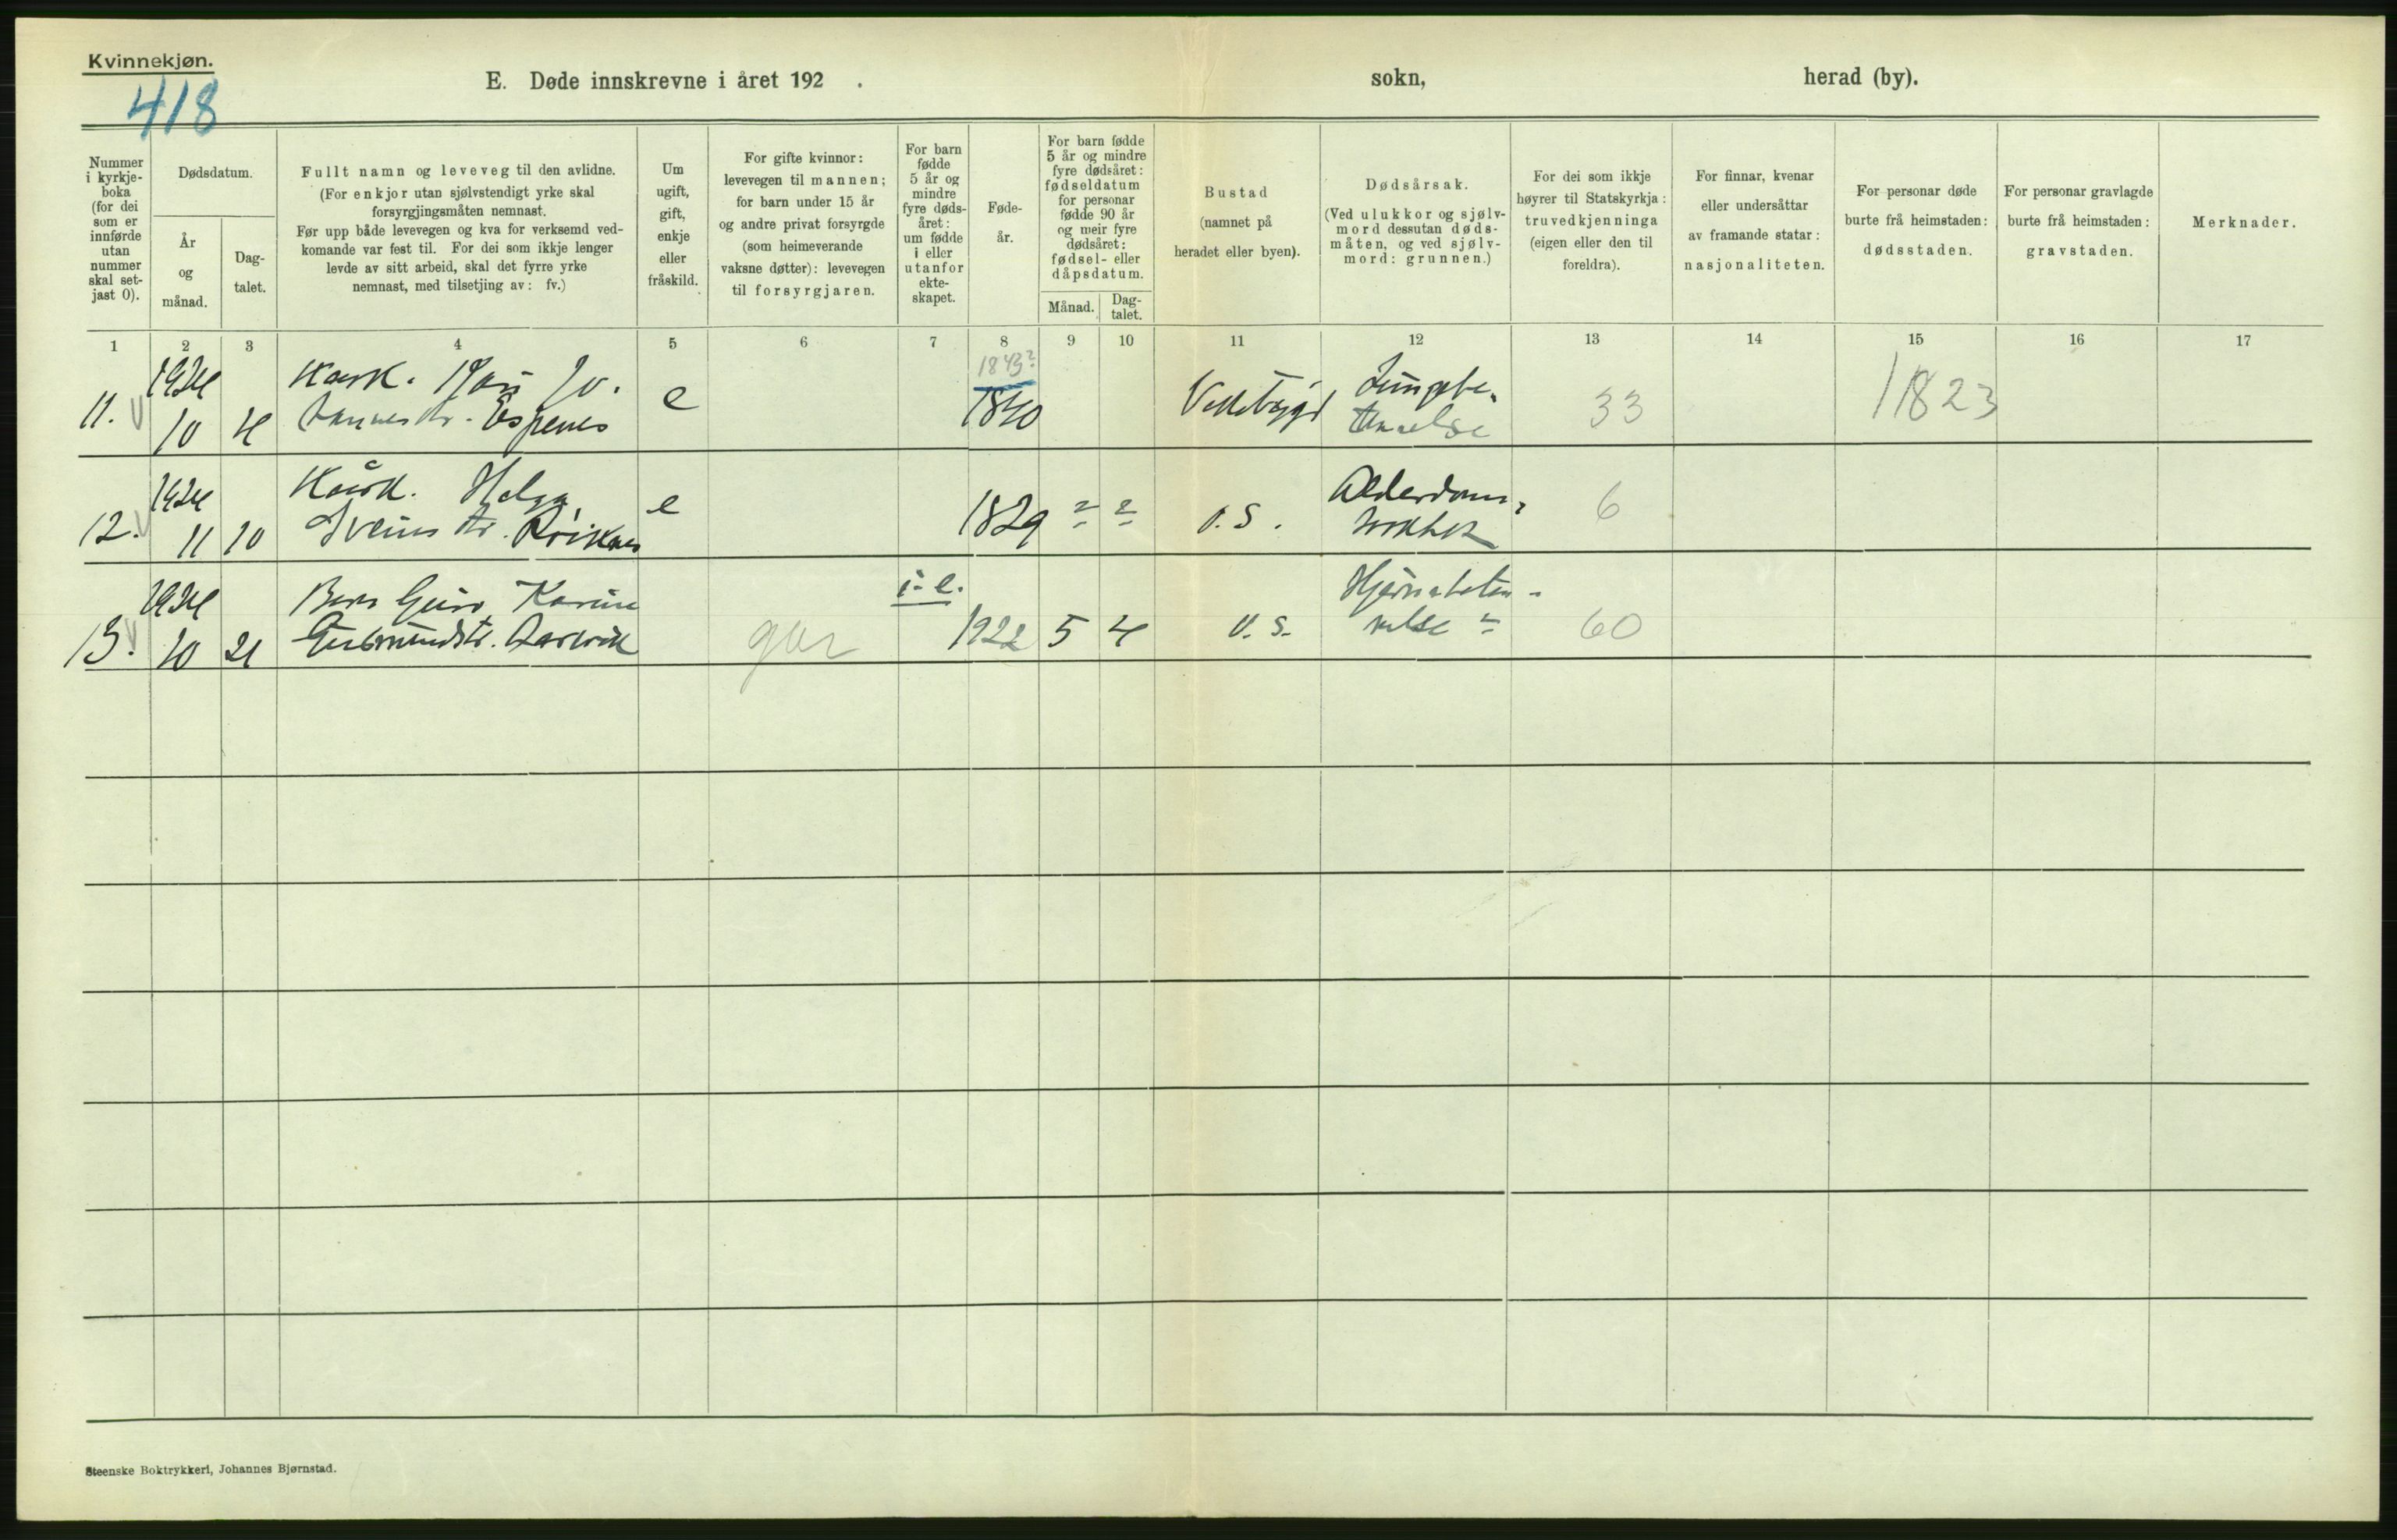 Kvinnekjøn.
418
E. Døde innskrevne i året 192 .
sokn,
herad (by).
Nummer
i kyrkje-
boka
(for dei
som er
innførde
utan
nummer
skal set-
jast 0).
Dødsdatum.
År
og
månad.
Dag-
talet.
Fullt namn og leveveg til den avlidne.
(For enkjor utan sjølvstendigt yrke skal
forsyrgjingsmåten nemnast.
Før upp både levevegen og kva for verksemd ved-
komande var fest til. For dei som ikkje lenger
levde av sitt arbeid, skal det fyrre yrke
nemnast, med tilsetjing av: fv.)
Um
ugift,
gift,
enkje
eller
fråskild.
For gifte kvinnor:
levevegen til mannen;
for barn under 15 år
og andre privat forsyrgde
(som heimeverande
vaksne døtter): levevegen
til forsyrgjaren.
For barn
fødde
5 år og
mindre
fyre døds-
året:
um fødde
i eller
utanfor
ekte-
skapet.
Føde-
år.
For barn fødde
5 år og mindre
fyre dødsåret:
fødseldatum
for personar
fødde 90 år
og meir fyre
dødsåret:
fødsel- eller
dåpsdatum.
Månad.
Dag-
talet.
Bustad
(namnet på
heradet eller byen).
Dødsårsak.
(Ved ulukkor og sjølv-
mord dessutan døds-
måten, og ved sjølv-
mord: grunnen.)
For dei som ikkje
høyrer til Statskyrkja:
truvedkjenninga
(eigen eller den til
foreldra).
For finnar, kvenar
eller undersåttar
av framande statar:
nasjonaliteten.
For personar døde
burte frå heimstaden:
dødsstaden.
For personar gravlagde
burte frå heimstaden:
gravstaden.
Merknader.
1 2 3 4 5 6 7 8 9 10 11 12 13 14 15 16 17
11. V 1924
10 4
Kaark.
Espenes
e
1843?
1840
33
11823
12. V 1924
11 10
Kårk. Helga
e
1829
u. s.
Alderdoms-
6
13. V 1924
10 21
Barn Guro Karine
Gudmundsdtr.
gbr
i. e.
1922 5 4
u. s.
60
Steenske Boktrykkeri, Johannes Bjørnstad.